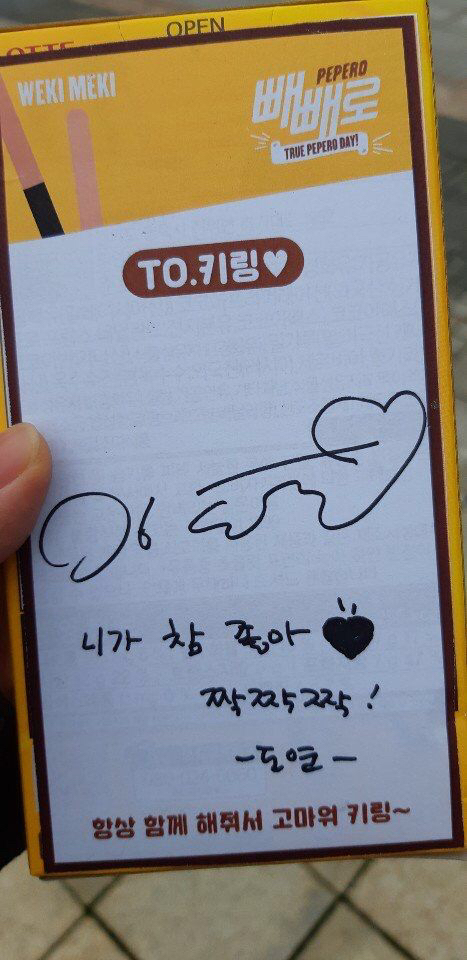 OPEN
LOTTE
WEKI MEKI
PEPERO
빼빼로
TRUE PEPERO DAY!
TO.키링♥
니가 참 좋아 ♥
짝짝짝짝!
-도연-
항상 함께 해줘서 고마워 키링~